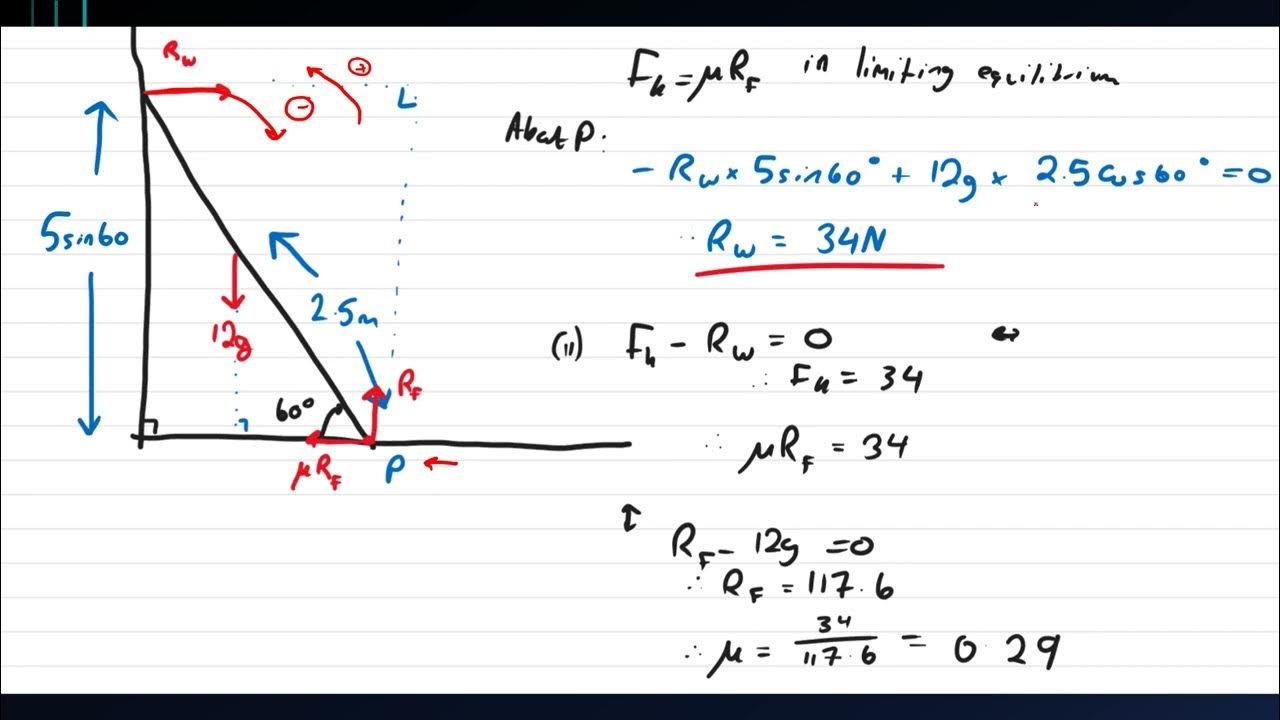 R_W
⊕
⊖
L
5sin60
2.5m
12g
60°
R_F
μR_F
P
F_R = μR_F in limiting equilibrium
About P:
- R_W × 5sin60° + 12g × 2.5cos60° = 0
∴ R_W = 34N
(ii) F_R - R_W = 0 ↔
∴ F_R = 34
∴ μR_F = 34
↕
R_F - 12g = 0
∴ R_F = 117.6
∴ μ = 34/117.6 = 0.29